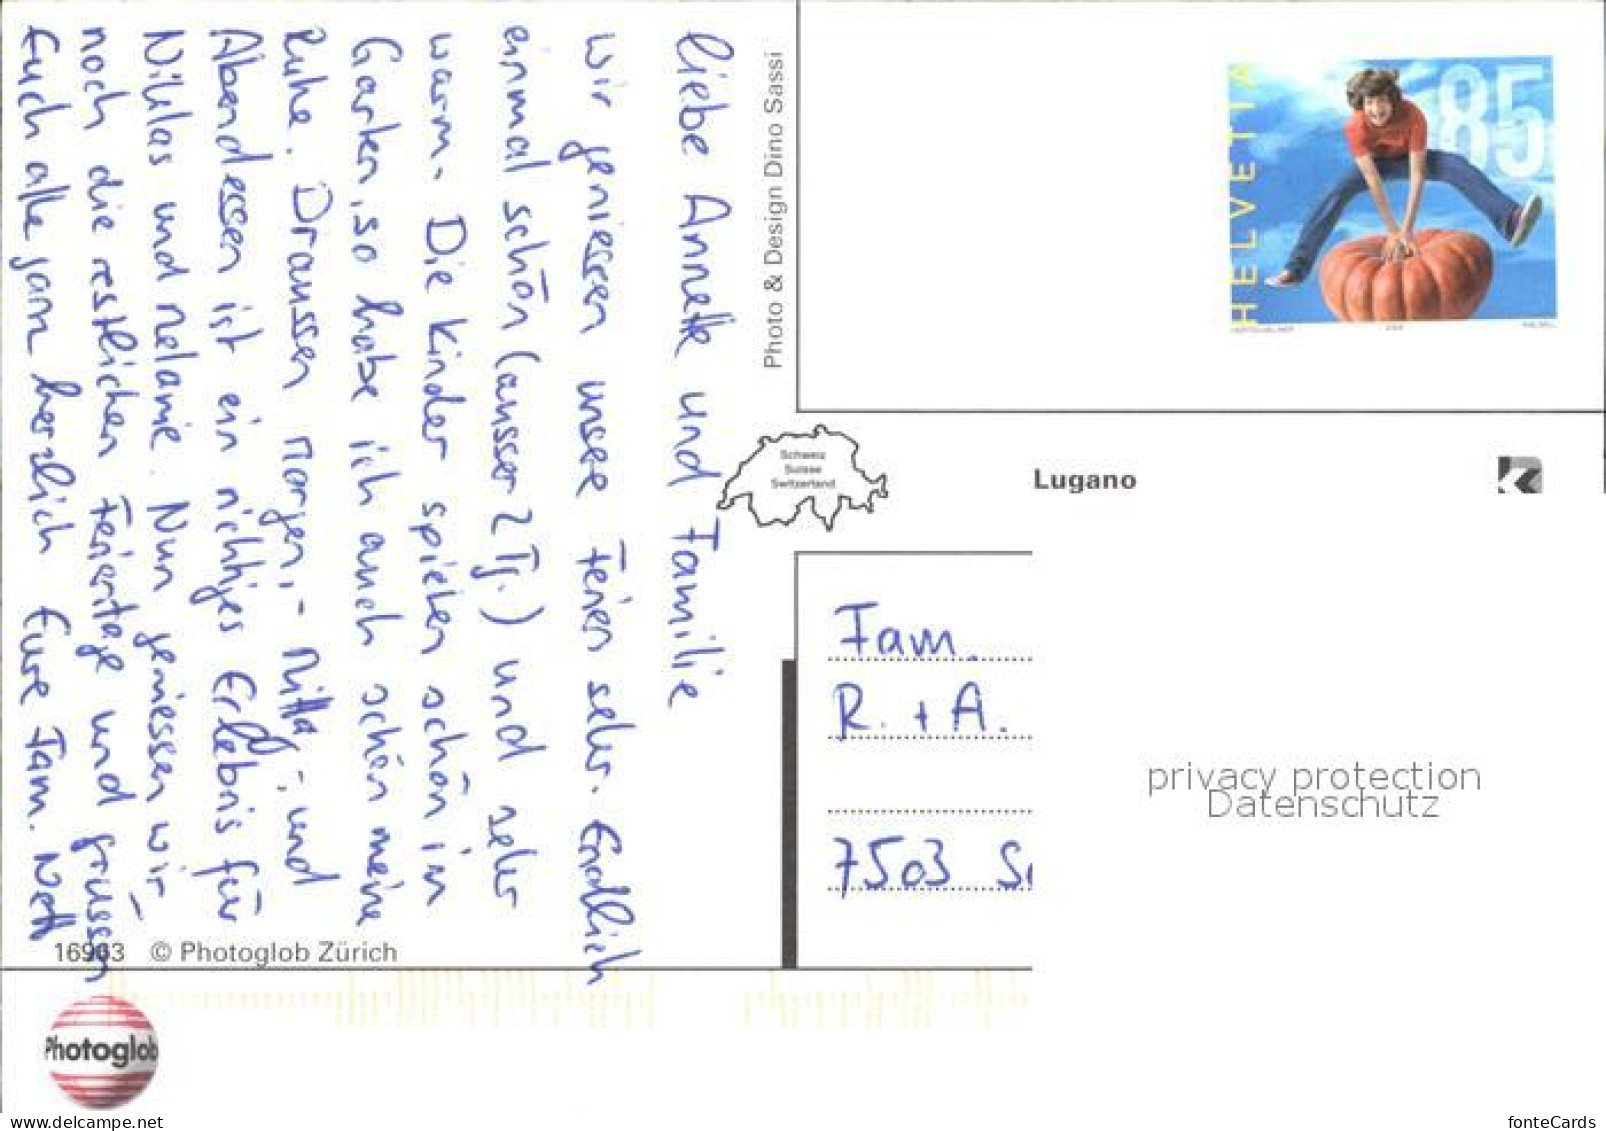 Liebe Annette und Familie
Wir geniessen unsere Ferien sehr. Endlich
einmal schön (ausser 2 Tg.) und sehr
warm. Die Kinder spielen schön im
Garten, so habe ich auch schön meine
Ruhe. Draussen Morgen,- Mittag,- und
Abendessen ist ein richtiges Erlebnis für
Niklas und Melanie. Nun geniessen wir
noch die restlichen Ferientage und grüssen
Euch alle ganz herzlich Eure Fam.
Photo & Design Dino Sassi
HELVETIA
85
Schweiz
Suisse
Switzerland
Lugano
Fam.
R. + A.
7503 S
privacy protection
Datenschutz
16963 © Photoglob Zürich
Photoglob
delcampe.net
fonteCards